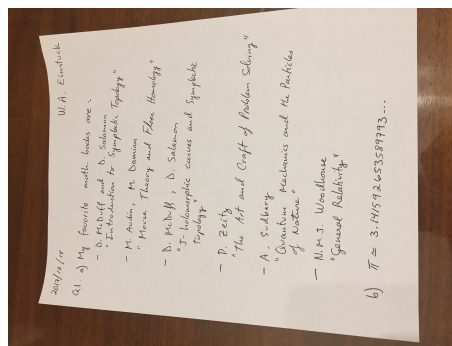 2017/10/14
W.A. Einstuck
Q1. a) My favorite math books are:
- D. McDuff and D. Salamon
"Introduction to Symplectic Topology"
- M. Audin, M. Damian
Morse Theory and Floer Homology"
- D. McDuff, D. Salamon
"J-holomorphic curves and Symplectic
Topology
- P. Zeitz
"The Art and Craft of Problem Solving"
- A. Sudbery
"Quantum Mechanics and the Particles
of Nature"
- N.M.J. Woodhouse
"General Relativity"
b) π ≃ 3.141592653589793...